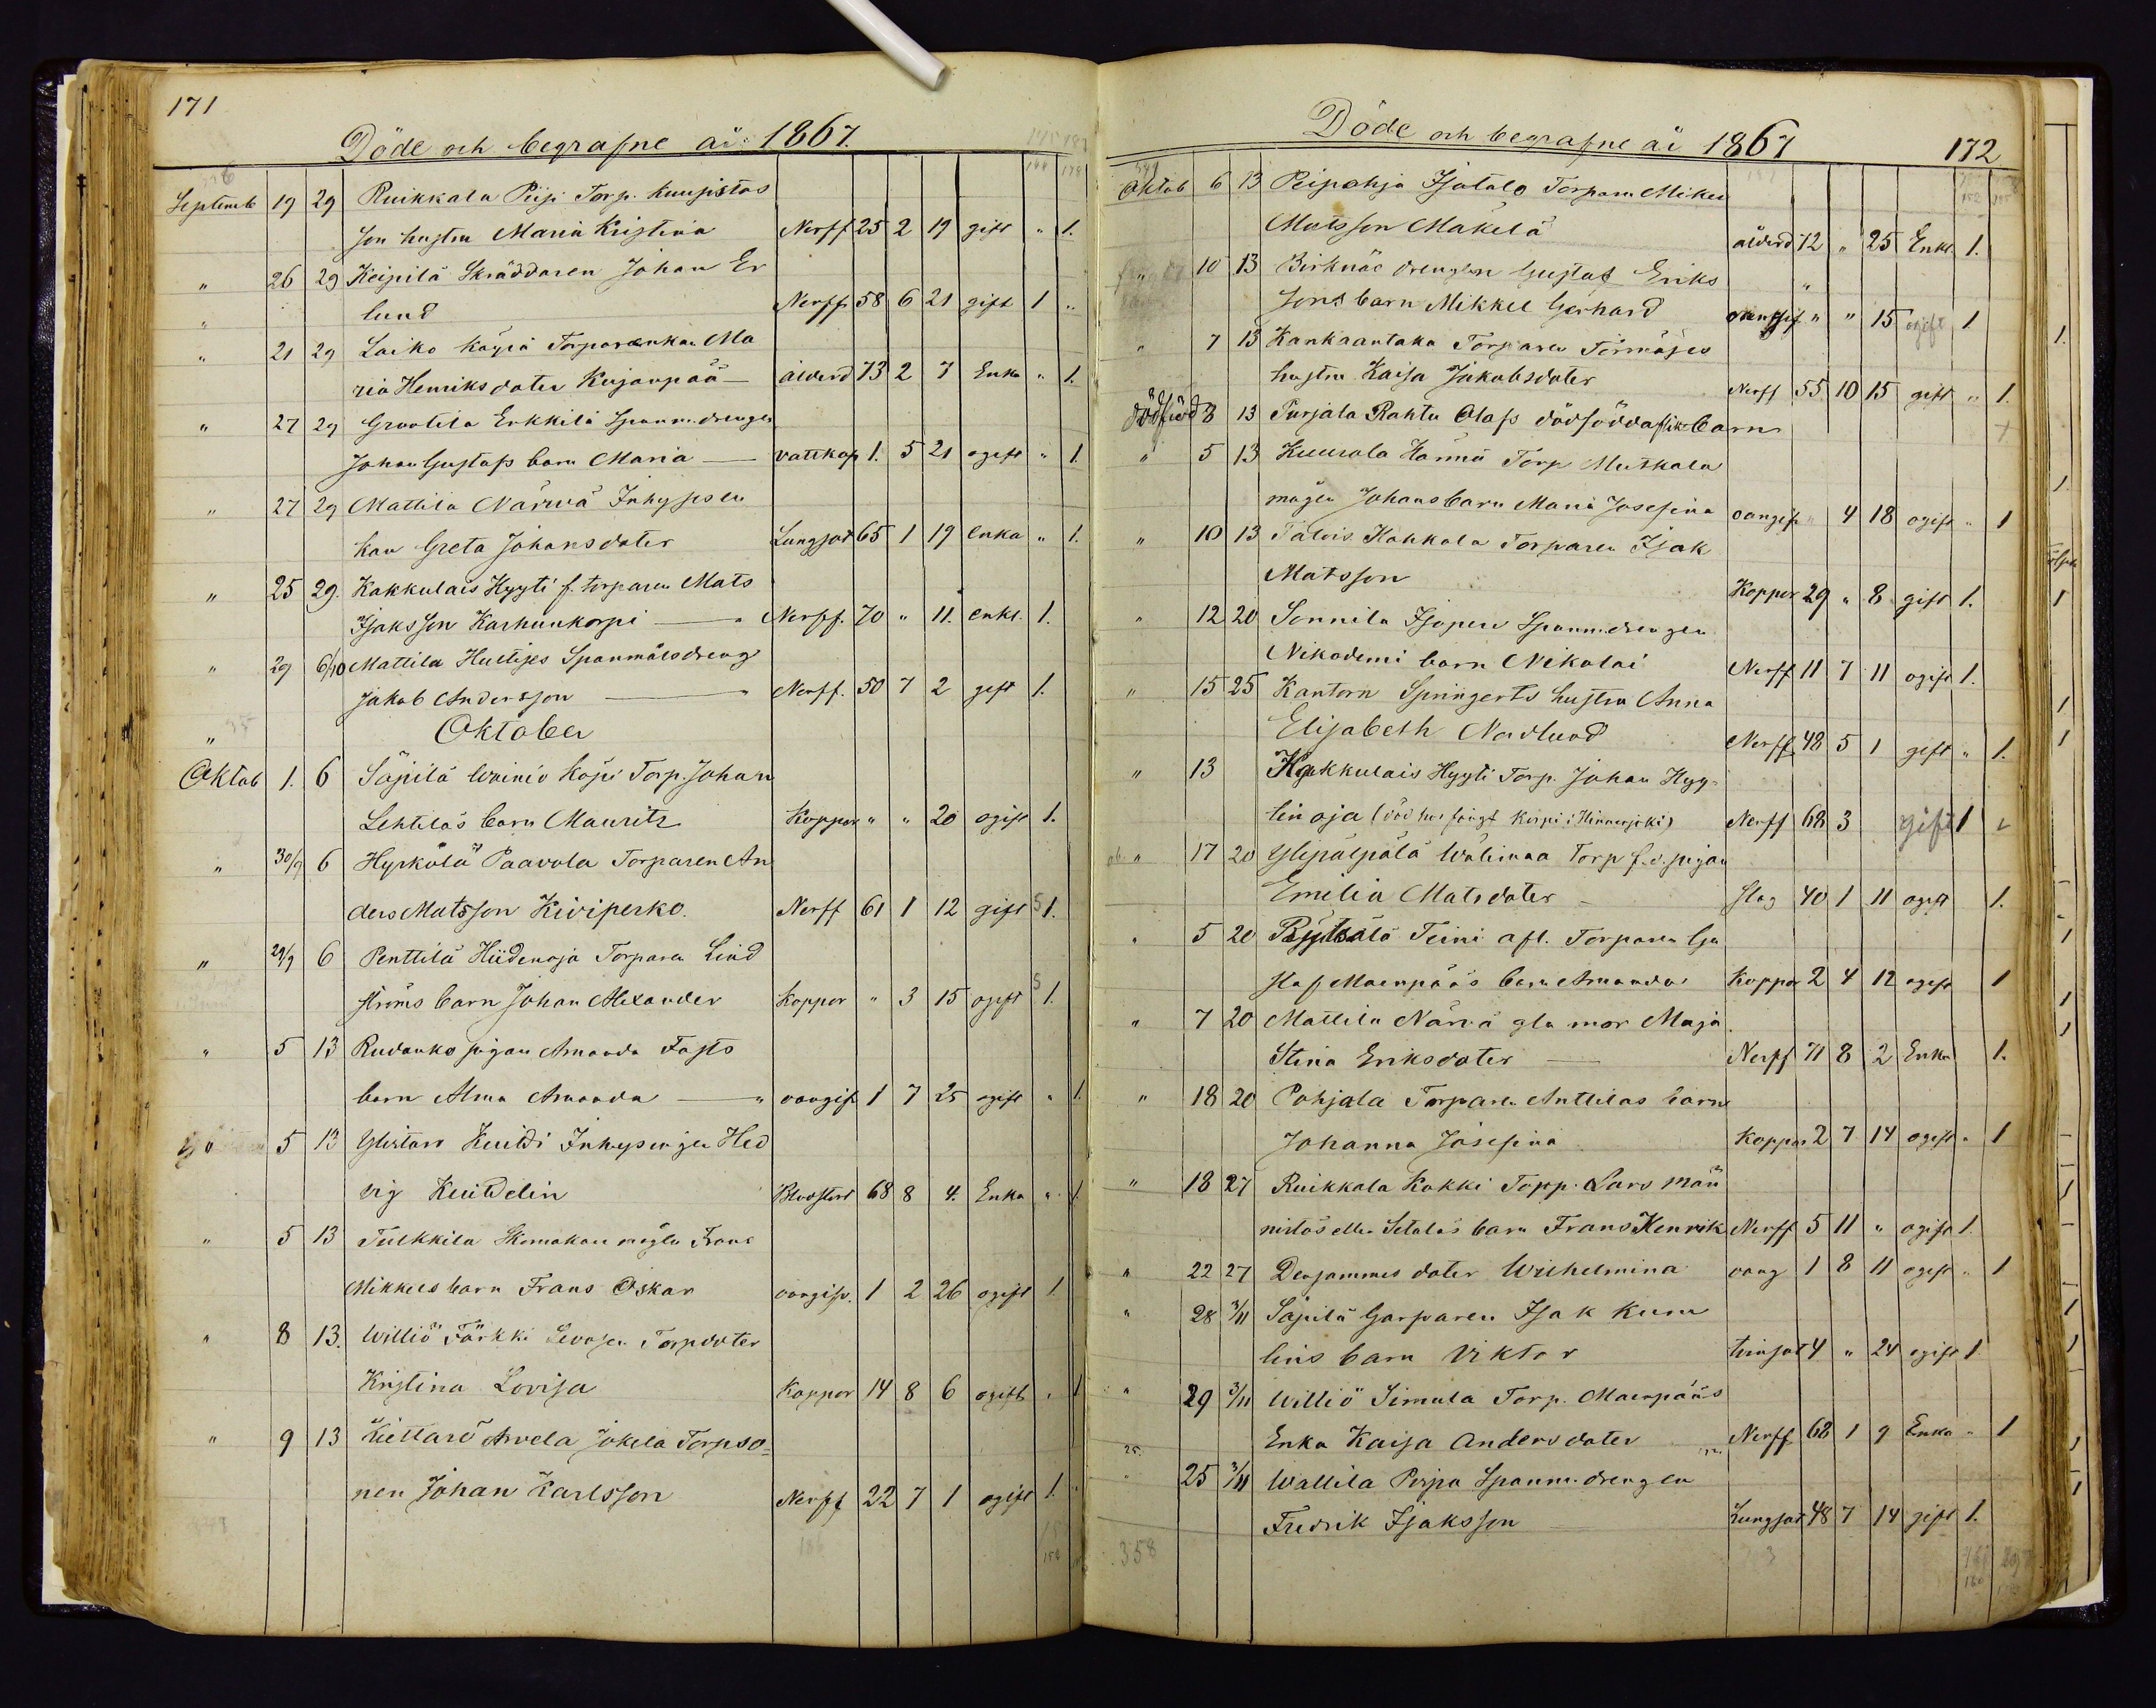 171
Döde och begrafne år 1867.
Septemb 19 29 Ruikkala Piji Torp. Kuusistos
son hustru Maria Kristina Nerff 25 2 19 gift " 1.
" 26 29 Keipilä Skräddaren Johan Er
lund Nerff 58 6 21 gift 1 "
" 21 29 Laiko Käyrä Torpareenkan Ma
ria Henriksdoter Kujanpää ålderd 73 2 7 Enka " 1.
" 27 29 Grootila Erkkilä Spanm.drengen
Johan Gustafs barn Maria vattkop 1. 5 21 ogift " 1.
" 27 29 Mattila Närwä Inhyses en
kan Greta Johansdoter Lungsot 65 1 19 enka " 1.
" 25 29. Kakkulais Hyyti f. torparen Mats
Isaksson Karhunkorpi Nerff. 70 " 11. enkl. 1.
" 29 6/10 Mattila Spanmålsdreng
Jakob Andersson Nerff. 50 7 2 gift 1.
Oktober
Oktob 1. 6 Säpilä Wainio Torp. Johan
Lehtiläs barn Mauritz Koppor " " 20 ogift 1.
" 30/9 6 Hyrkölä Paavola Torparen An
ders Matsson Kiviperko. Nerff 61 1 12 gift 1.
" 29/9 6 Penttilä Hiidenoja Torparen Lind
ströms barn Johan Alexander Koppor " 3 15 ogift 1.
" 5 13 Rudanko pigan Amanda Fasts
barn Alma Amanda oangif 1 7 25 ogift " 1.
" 5 13 Ylistaro Kuidi Inhyses Hed
vig Kuidelin Blodstört 68 8 4. Enka " 1.
" 5 13 Tulkkila Skomakare Frans
Mikkels barn Frans Oskar oangif. 1 2 26 ogift 1
" 8 13. Williö Färkki Torpdoter
Kristina Lovisa Koppor 14 8 6 ogift " 1
" 9 13 Liettaro Arvela Jokela Torpso-
nen Johan Karlsson Nerff 22 7 1 ogift 1.
186
Döde och begrafne år 1867
172
Oktob 6 13 Peipohja Isotalo Torparen Mikel
Matsson Mäkelä ålderd 72 " 25 Enkl. 1.
" 10 13 Kirknäs drengen Gustaf Eriks
sons barn Mikkel Gerhard oangif " " 15 ogift 1
" 7 13 Kankaantaka Torparen Törmäses
hustru Kaisa Jakobsdoter Nerff 55 10 15 gift " 1.
dödfödd 8 13 Purjala Rahtu Olafs dödfödda flickebarn
" 5 13 Kuurola Hännä Torp. Mutkala
mågen Johans barn Maria Josefina oangif " 4 18 ogift " 1
" 10 13 Talois Kahkola Torparen Isak
Matsson Koppor 29 " 8 gift 1.
" 12 20 Sonnila Isopere Spanm.drengen
Nikodemi barn Nikolai Nerff 11 7 11 ogift 1.
" 15 25 Kantorn Springerts hustru Anna
Elisabeth Nordlund Nerff 48 5 1 gift " 1.
" 13 Kakkulais Hyyti Torp. Johan Hyy-
tinoja Nerff 68 3 gift 1
" 17 20 Ylipälpälä Wälimaa Torp f.d. pigan
Emilia Matsdoter Slag 40 1 11 ogift 1.
" 5 20 Pytsälä Teini afl. Torparen Gu
staf Maenpääs barn Amanda Koppor 2 4 12 ogift 1
" 7 20 Mattila Närvä gla mor Maja
Stina Eriksdoter Nerff 71 8 2 Enka 1.
" 18 20 Pohjala Torparen Anttilas barn
Johanna Josefina Koppor 2 7 14 ogift " 1
" 18 27 Ruikkala Kokki Torp. Lars Män
nistös eller Setäläs barn Frans Henrik Nerff 5 11 " ogift 1.
" 22 27 Densammes doter Wilhelmina oang 1 8 11 ogift " 1
" 28 3/11 Säpilä Garfvaren Isak Kum
lins barn Viktor 4 " 24 ogift 1
" 29 3/11 Williö Simula Torp. Maenpääs
Enka Kaisa Andersdoter Nerff 68 1 9 Enka " 1
" 25 3/11 Wallila Perpo Spanm.drengen
Fredrik Isaksson Lungsot 48 7 14 gift 1.
358